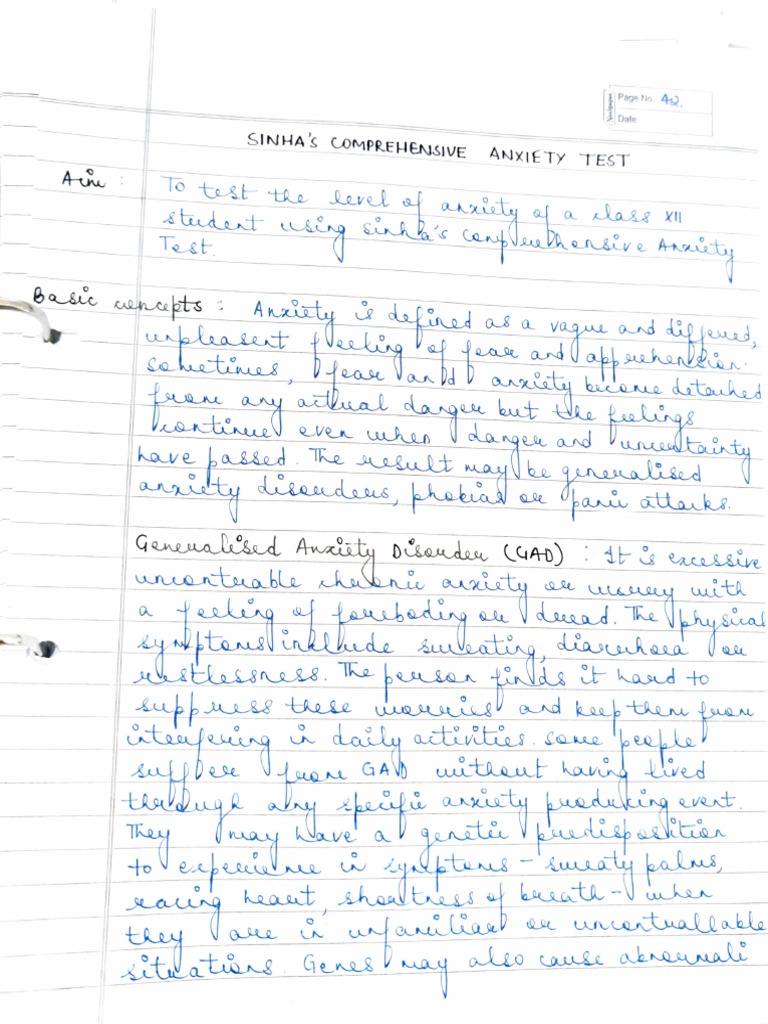 Page No. 42.
Date
SINHA'S COMPREHENSIVE ANXIETY TEST
Aim : To test the level of anxiety of a class XII
student using sinha's comprehensive Anxiety
Test.
Basic concepts : Anxiety is defined as a vague and diffused,
unpleasent feeling of fear and apprehension.
sometimes, fear and anxiety become detached
from any actual danger but the feelings
continue even when danger and uncertainty
have passed. The result may be generalised
anxiety disorders, phobias or panic attacks.
Generalised Anxiety Disorder (GAD) : It is excessive
uncontrable chronic anxiety or worry with
a feeling of foreboding or dread. The physical
symptoms include sweating, diarrhoea or
restlessness. The person finds it hard to
suppress these worries and keep them from
interfering in daily activities. some people
suffer from GAD without having lived
through any specific anxiety producing event.
They may have a genetic predisposition
to experience in symptoms - sweaty palms,
racing heart, shortness of breath - when
they are in unfamiliar or uncontrallable
situations. Genes may also cause abnormali